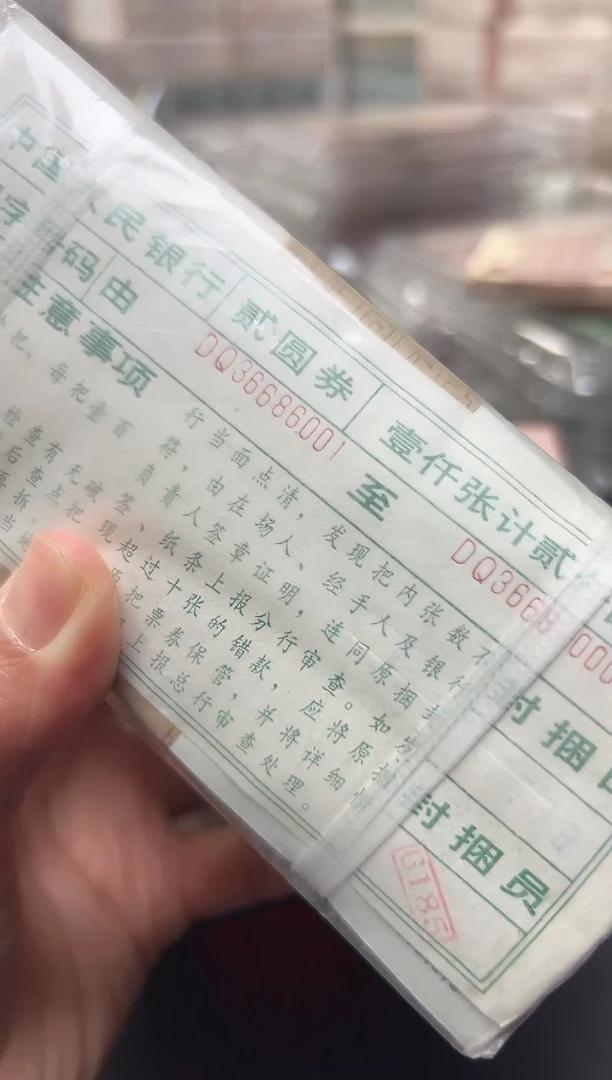 中国人民银行 贰圆券 壹仟张计贰
字 号码 由 DQ36686001 至 DQ3668 000
注意事项
封捆日
每把壹百
行当面点清，发现把内张数不
符，由在场人、经手人及银行
检查有无破 负责人签章证明，连同原捆封
签、纸条上报分行审查。如发
现超过十张的错款，应将原捆
原把票券保管，并将详细情
上报总行审查处理。
封捆员
6185